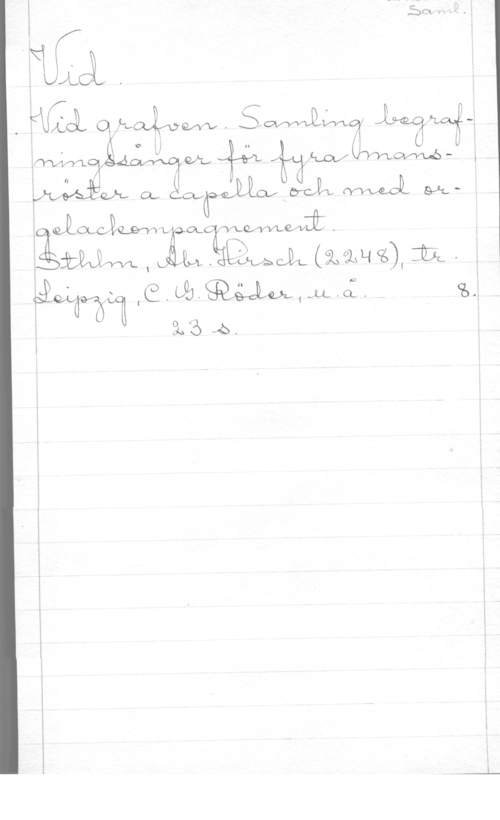 Saml.
Vid.
Vid grafven. Samling begraf-
ningssånger för fyra mans-
röster a capella och med or-
gelackompagnement.
Sthlm, Abr. Hirsch (2248), tr.
Leipzig, C. G. Röder, u. å. 8.
23 s.